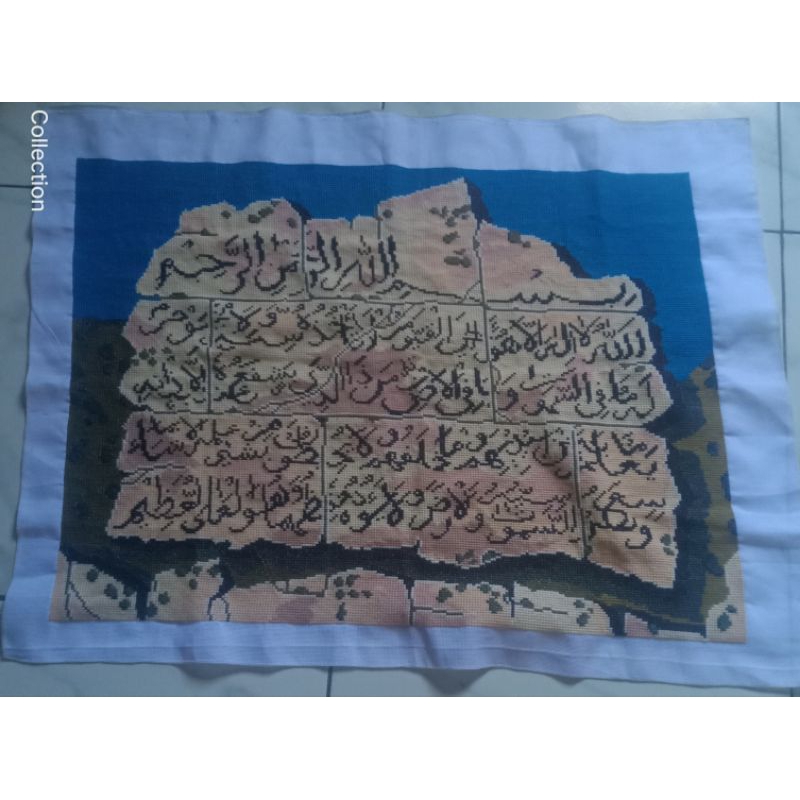 Collection
بسم الله الرحمن الرحيم
الله لا اله الا هو الحي القيوم لا تأخذه سنة ولا نوم
له ما في السموات وما في الارض من ذا الذي يشفع عنده الا باذنه
يعلم ما بين ايديهم وما خلفهم ولا يحيطون بشيء من علمه الا بما شاء
وسع كرسيه السموات والارض ولا يؤده حفظهما وهو العلي العظيم